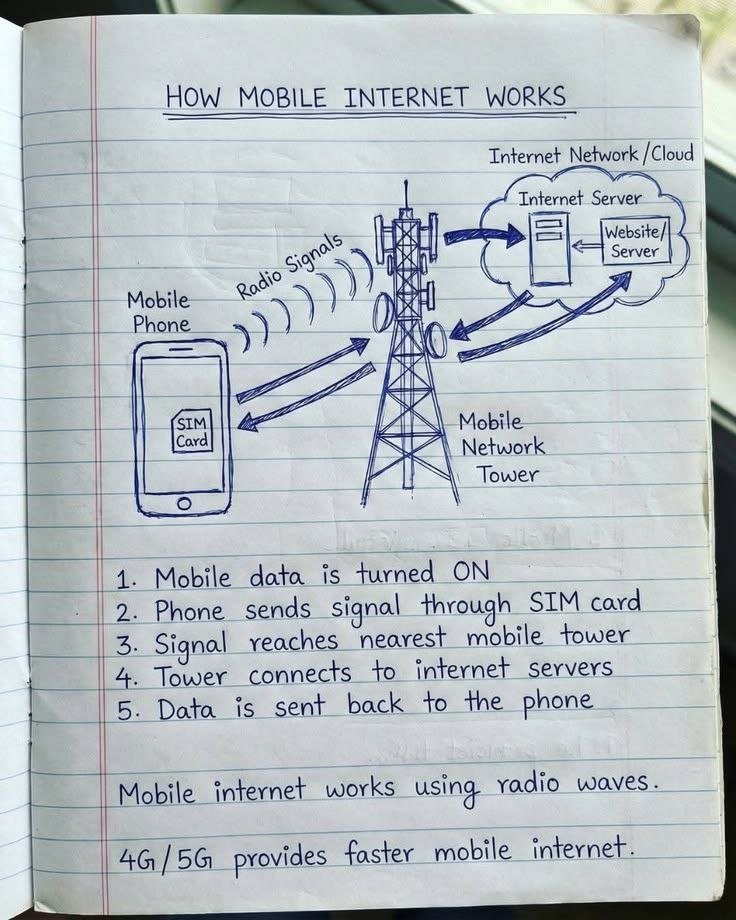 HOW MOBILE INTERNET WORKS
Internet Network/Cloud
Internet Server
Website/
Server
Radio Signals
Mobile
Phone
SIM
Card
Mobile
Network
Tower
1. Mobile data is turned ON
2. Phone sends signal through SIM card
3. Signal reaches nearest mobile tower
4. Tower connects to internet servers
5. Data is sent back to the phone
Mobile internet works using radio waves.
4G/5G provides faster mobile internet.